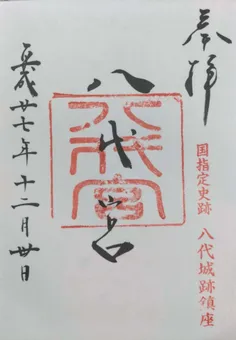 奉拝
国指定史跡 八代城跡鎮座
八代宮
八代宮
平成廿七年十二月廿日